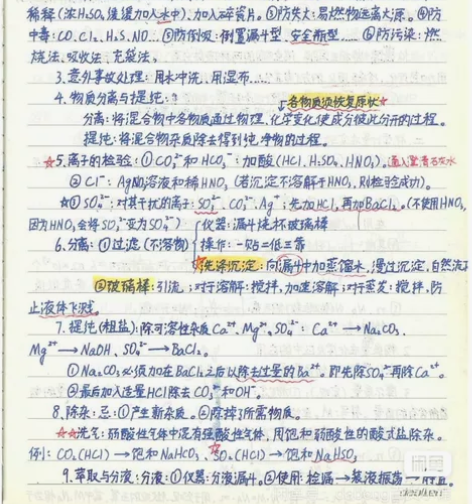 稀释(浓H₂SO₄缓缓加入水中)、加入碎瓷片。⑤防失火:易燃物远离火源。⑥防
中毒:CO、Cl₂、H₂S、NO… ⑦防倒吸:倒置漏斗型、安全瓶型…… ⑧防污染:燃
烧法、吸收法、充袋法。
3.意外事故处理:用水冲洗、用湿布……
各物质须恢复原状☆
4.物质分离与提纯:
分离:将混合物中各物质通过物理、化学变化使成分彼此分开的过程。
提纯:将混合物杂质除去得到纯净物的过程。
☆5.离子的检验:①CO₃²⁻和HCO₃⁻:加酸(HCl、H₂SO₄、HNO₃)。通入澄清石灰水
②Cl⁻:AgNO₃溶液和稀HNO₃(若沉淀不溶解于HNO₃,则检验成功)。
☆③SO₄²⁻:对其干扰的离子:SO₃²⁻、CO₃²⁻、Ag⁺;先加HCl,再加BaCl₂。(不使用HNO₃,
因为HNO₃会将SO₃²⁻变为SO₄²⁻) 仪器:漏斗烧杯玻璃棒
6.分离:①过滤(不溶物) 操作:一贴二低三靠
☆洗涤沉淀:向漏斗中加蒸馏水,浸过沉淀,自然流下
②玻璃棒:引流;对于溶解:搅拌,加速溶解;对于蒸发:搅拌,防
止液体飞溅。
7.提纯(粗盐):除可溶性杂质Ca²⁺、Mg²⁺、SO₄²⁻:Ca²⁺→Na₂CO₃、
Mg²⁺→NaOH、SO₄²⁻→BaCl₂。
①Na₂CO₃必须加在BaCl₂之后以除去过量的Ba²⁺。即先除SO₄²⁻再除Ca²⁺。
②最后加入适量HCl除去CO₃²⁻和OH⁻。
8.除杂:忌:①产生新杂质。②除掉了所需物质。
☆☆洗气:弱酸性气体中混有强酸性气体,用饱和弱酸性的酸式盐除杂。
例:CO₂(HCl)→饱和NaHCO₃、SO₂(HCl)→饱和NaHSO₃
9.萃取与分液:分液:①仪器:分液漏斗。②使用:检漏→装液振荡→静置
闲鱼